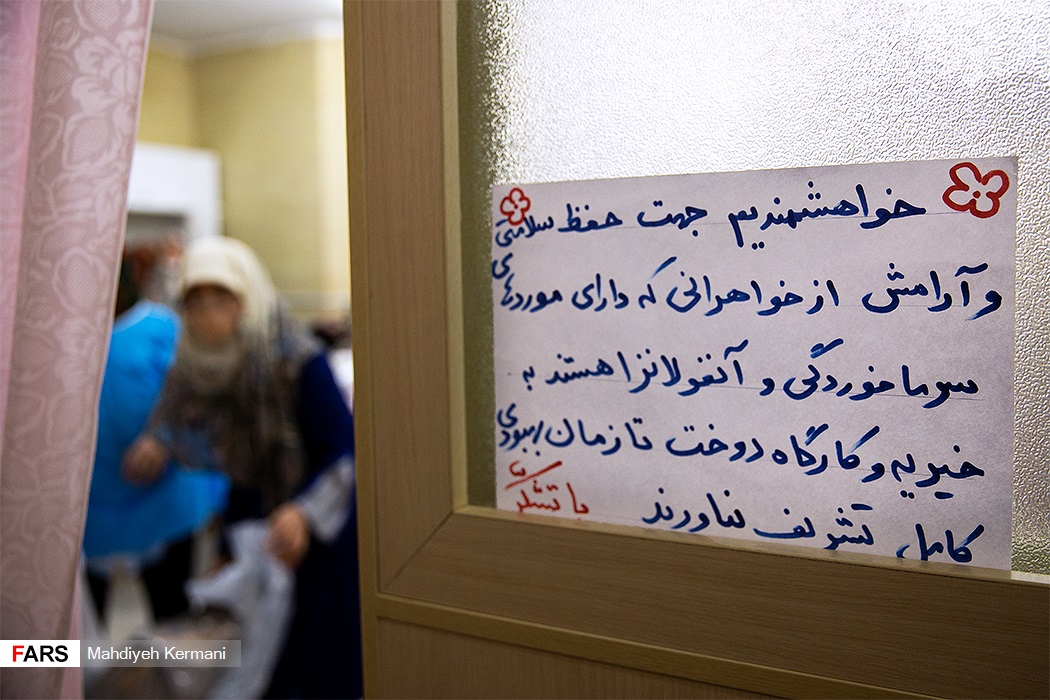 خواهشمندیم جهت حفظ سلامتی
و آرامش از خواهرانی که دارای موردهای
سرماخوردگی و آنفولانزا هستند به
خیریه و کارگاه دوخت تا زمان بهبودی
کامل تشریف نیاورند
با تشکر
FARS
Mahdiyeh Kermani